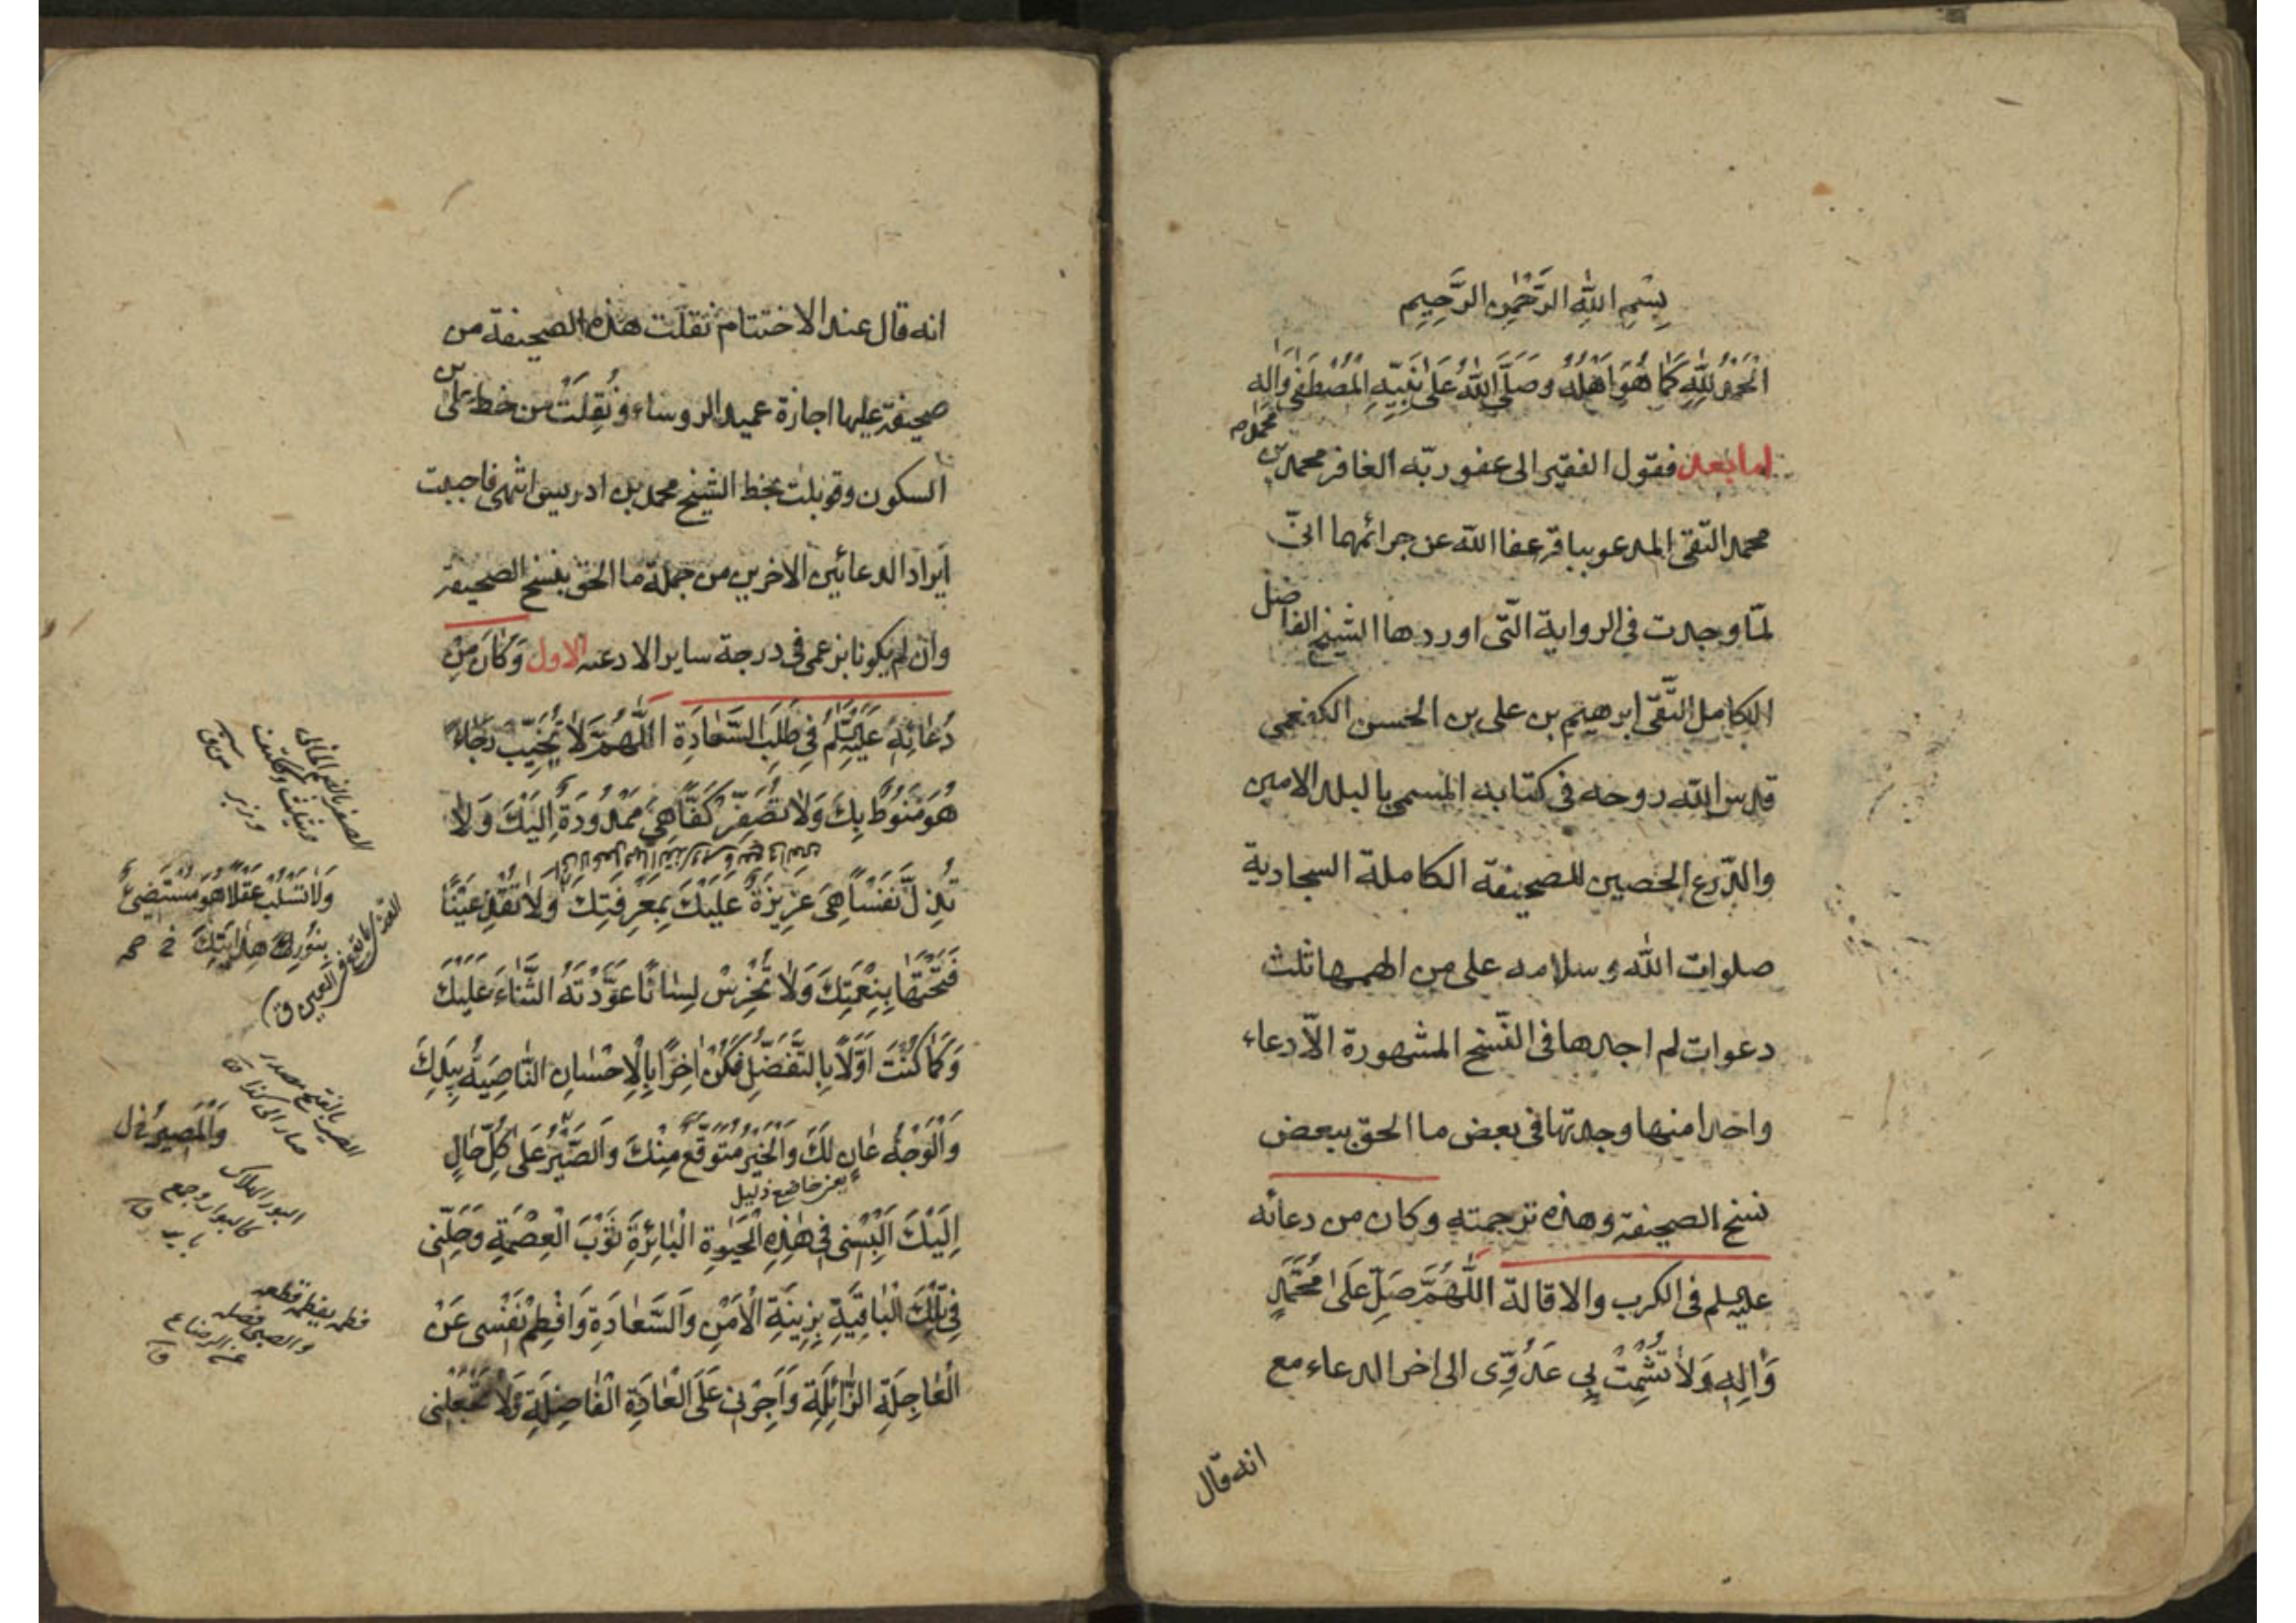 بِسْمِ اللّٰهِ الرَّحْمٰنِ الرَّحِيمِ
اَلْحَمْدُ لِلّٰهِ كَمَا هُوَ اَهْلُهُ وَصَلَّى اللّٰهُ عَلٰى نَبِيِّهِ الْمُصْطَفٰى وَاٰلِهِ
محمد م
اما بعد فقول الفقير الى عفو ربّه الغافر محمد بن
محمد التّقى المدعو بباقر عفا اللّه عن جرائمهما انّى
لمّا وجدت فى الرواية الّتى اوردها الشيخ الفاضل
الكامل التَّقى ابرهيم بن على بن الحسن الكفعمى
قدس اللّه روحه فى كتابه المسمى بالبلد الامين
والدّرع الحصين للصحيفة الكاملة السجادية
صلوات اللّه وسلامه على من الهمها ثلث
دعوات لم اجدها فى النّسخ المشهورة الّا دعاء
واحدا منها وجدتها فى بعض ما الحق ببعض
نسخ الصحيفة وهذه ترجمته وكان من دعائه
عليه سلم فى الكرب والاقالة اَللّٰهُمَّ صَلِّ عَلٰى مُحَمَّدٍ
وَاٰلِهِ وَلَا تُشْمِتْ بِى عَدُوِّى الى اخر الدعاء مع
انه قال
انه قال عند الاختتام نقلت هذه الصحيفة من
صحيفة عليها اجازة عميد الروساء ونُقِلَتْ من خط على بن
السكون وقوبلت بخط الشيخ محمد بن ادريس انتهى فاحببت
ايراد الدعائين الاخرين من جملة ما الحق بنسخ الصحيفة
وان لم يكونا بزعمى فى درجة ساير الادعيه الاول وَكَانَ مِنْ
دُعَائِهِ عَلَيْهِ سَلَّمُ فِى طَلَبِ السَّعَادَةِ اَللّٰهُمَّ لَا تُخَيِّبْ رَجَاءً
هُوَ مَنُوطٌ بِكَ وَلَا تُصَفِّرْ كَفًّا هِىَ مَمْدُودَةٌ اِلَيْكَ وَلَا
تُذِلَّ نَفْسًا هِىَ عَزِيزَةٌ عَلَيْكَ بِمَعْرِفَتِكَ وَلَا تُقْذِ عَيْنًا
فَتَحْتَهَا بِنِعْمَتِكَ وَلَا تُخْرِسْ لِسَانًا عَوَّدْتَهُ الثَّنَاءَ عَلَيْكَ
وَكَمَا كُنْتَ اَوَّلًا بِالتَّفَضُّلِ فَكُنْ اٰخِرًا بِالْاِحْسَانِ النَّاصِيَةُ بِيَدِكَ
وَالْوَجْهُ عَانٍ لَكَ وَالْخَيْرُ مُتَوَقَّعٌ مِنْكَ وَالصَّيْرُ عَلٰى كُلِّ حَالٍ
يعنى خاضع ذليل
اِلَيْكَ اَلْبِسْنِى فِى هٰذِهِ الْحَيٰوةِ الْبَائِرَةِ ثَوْبَ الْعِصْمَةِ وَحَلِّنِى
فِى تِلْكَ الْبَاقِيَةِ بِزِينَةِ الْاَمْنِ وَالسَّعَادَةِ وَافْطِمْ نَفْسِى عَنْ
الْعَاجِلَةِ الزَّائِلَةِ وَاَجْرِنِى عَلَى الْعَادَةِ الْفَاضِلَةِ وَلَا تَجْعَلْنِى
وَلَا تَسْلُبْ عَقْلًا هُوَ مُسْتَضِىءٌ
بِنُورِ هِدَايَتِكَ
الصير بالفتح مصدر
صار الى كذا
وَالْمَصِيرُ
البور الهلاك
كالبوار وجمع
باير
فطمه يفطمه قطعه
والصبى فصله
عن الرضاع